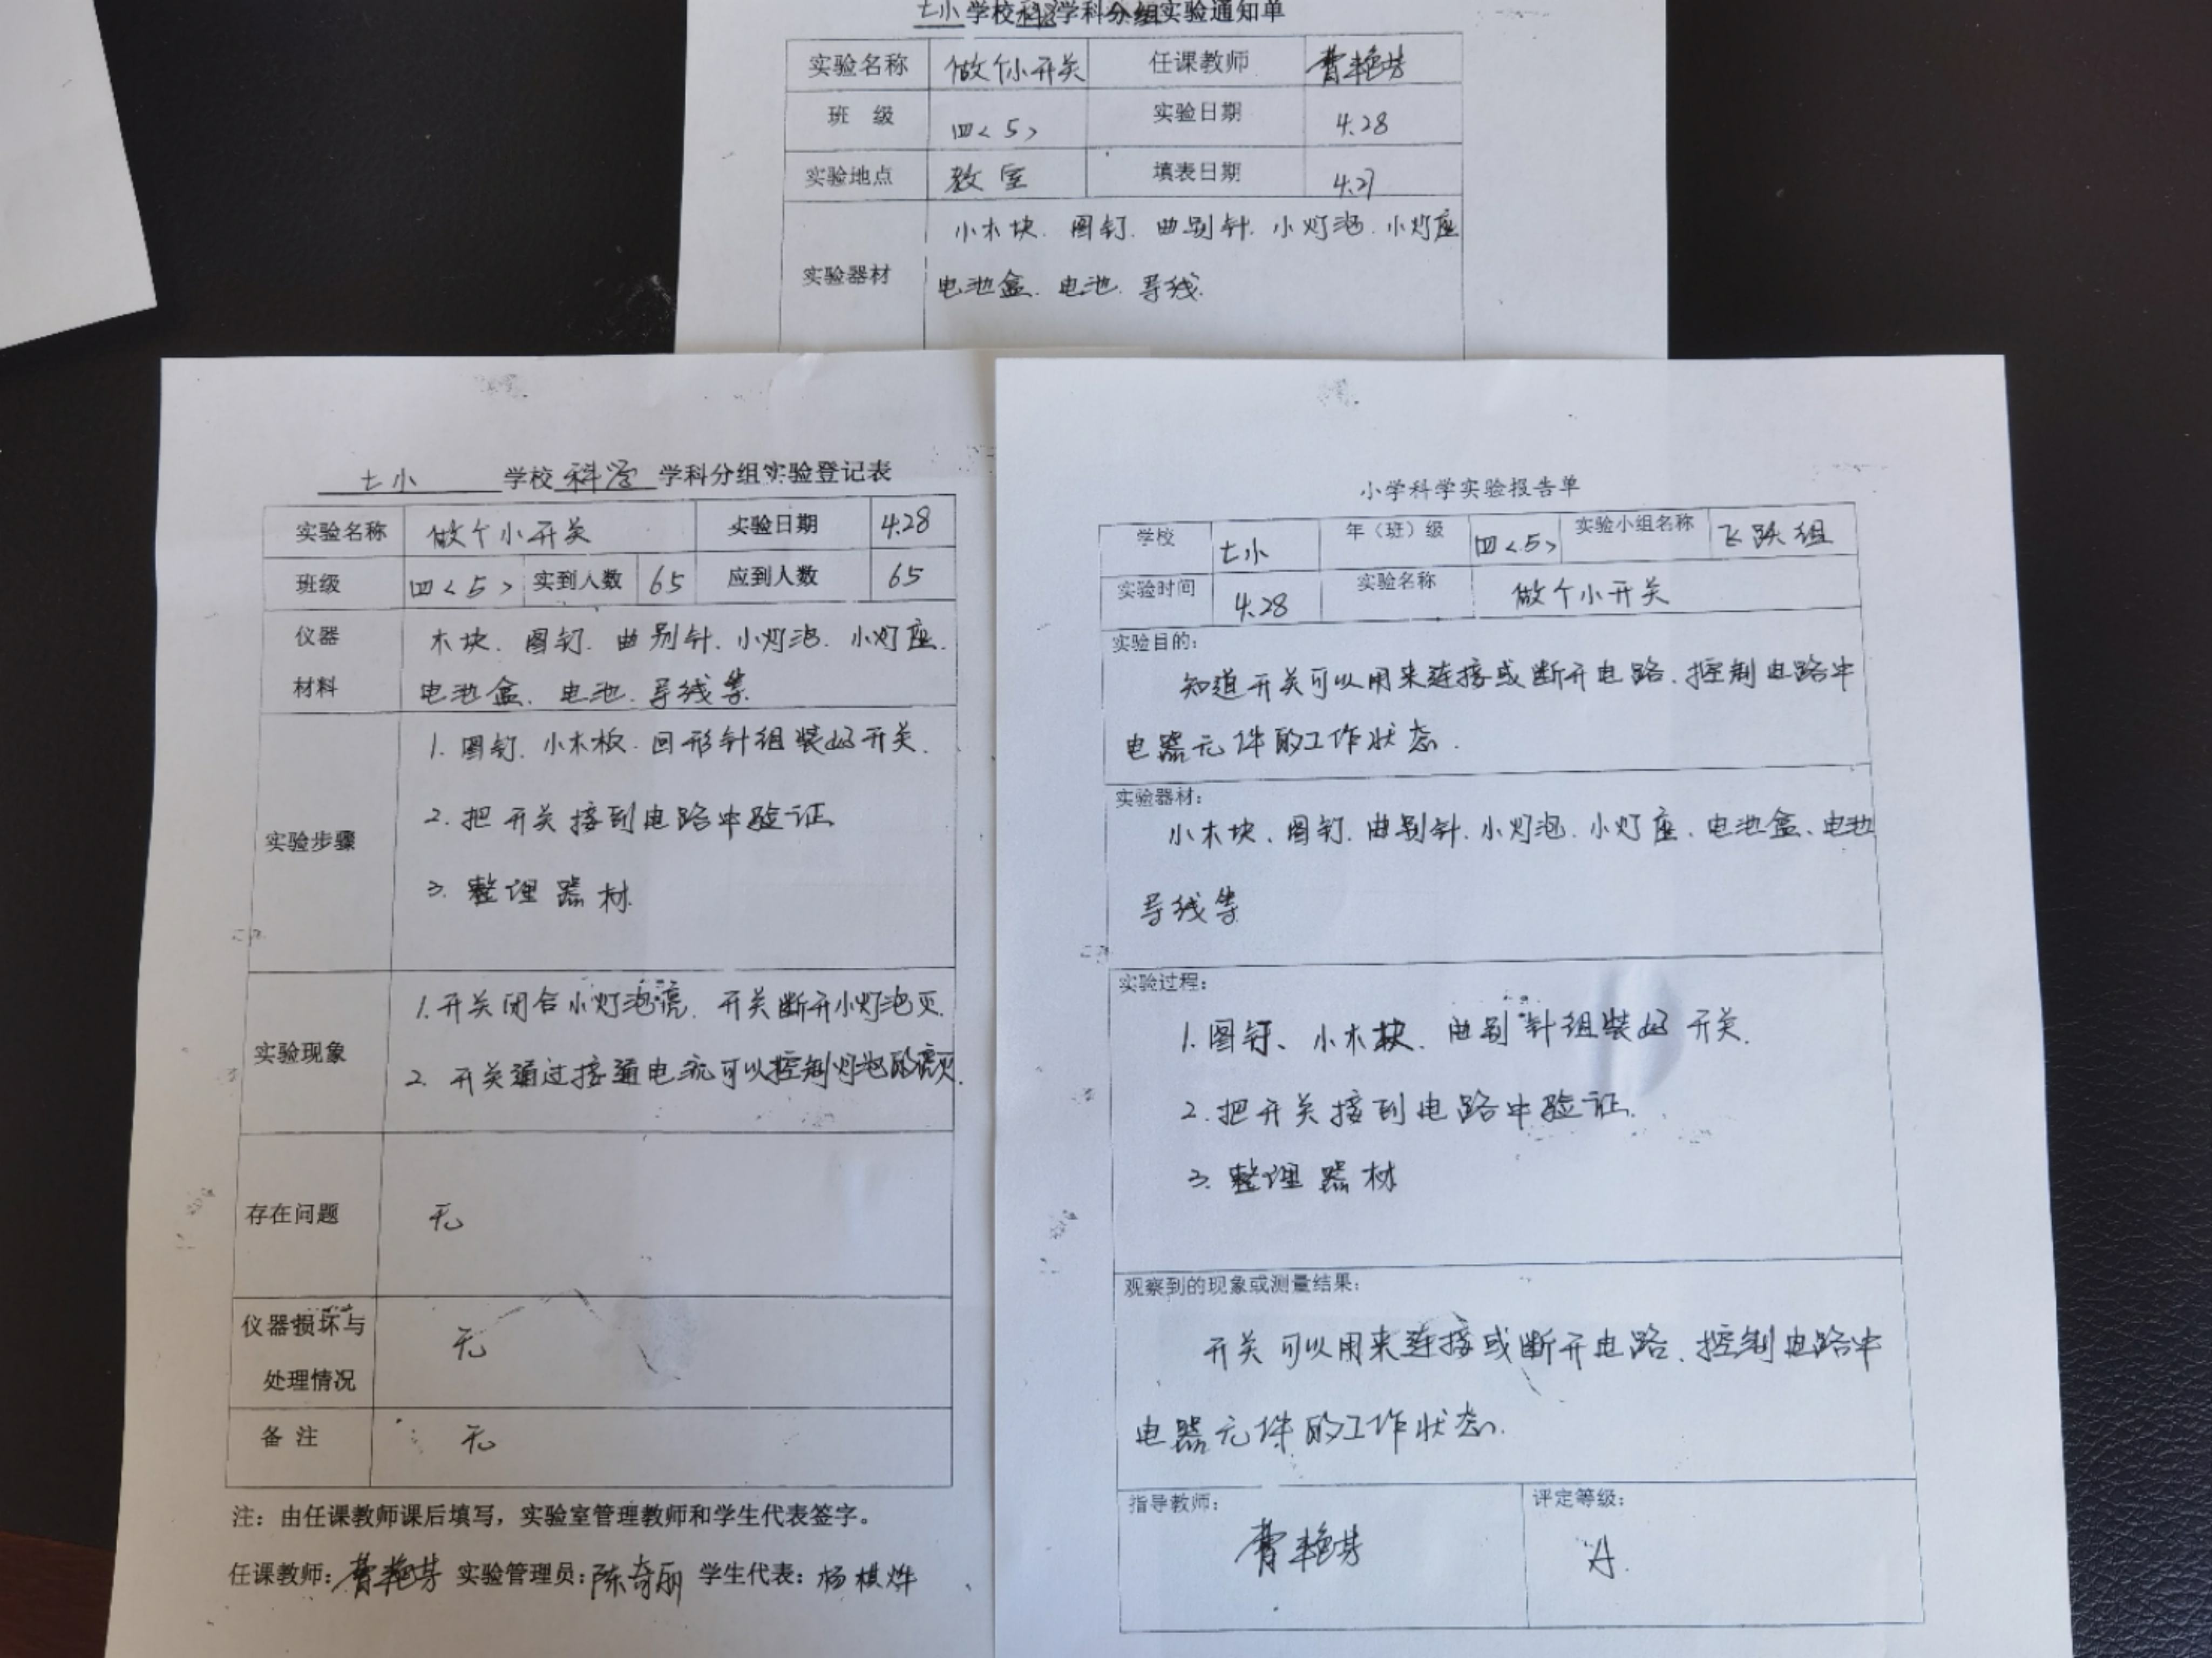 七小学校科学学科分组实验通知单
实验名称 做个小开关 任课教师 曹艳芳
班 级 四<5> 实验日期 4.28
实验地点 教室 填表日期 4.27
小木块.图钉.曲别针.小灯泡.小灯座
实验器材
电池盒.电池.导线.
七小 学校 科学 学科分组实验登记表
实验名称 做个小开关 实验日期 4.28
班级 四<5> 实到人数 65 应到人数 65
仪器 木块、图钉.曲别针.小灯泡.小灯座.
材料 电池盒、电池.导线等
1.图钉.小木板.回形针组装好开关.
2.把开关接到电路中验证
实验步骤
3.整理器材
1.开关闭合小灯泡亮.开关断开小灯泡灭.
实验现象
2.开关通过接通电流可以控制灯泡的亮灭.
存在问题 无
仪器损坏与
处理情况 无
备 注 无
注：由任课教师课后填写，实验室管理教师和学生代表签字。
任课教师：曹艳芳 实验管理员：陈奇丽 学生代表：杨棋烨
小学科学实验报告单
学校 七小 年（班）级 四<5> 实验小组名称 飞跃组
实验时间 4.28 实验名称 做个小开关
实验目的：
知道开关可以用来连接或断开电路、控制电路中
电器元件的工作状态.
实验器材：
小木块、图钉.曲别针.小灯泡.小灯座、电池盒、电池
导线等
实验过程：
1.图钉、小木块.曲别针组装好开关.
2.把开关接到电路中验证.
3.整理器材
观察到的现象或测量结果：
开关可以用来连接或断开电路、控制电路中
电器元件的工作状态.
指导教师： 曹艳芳 评定等级： A.